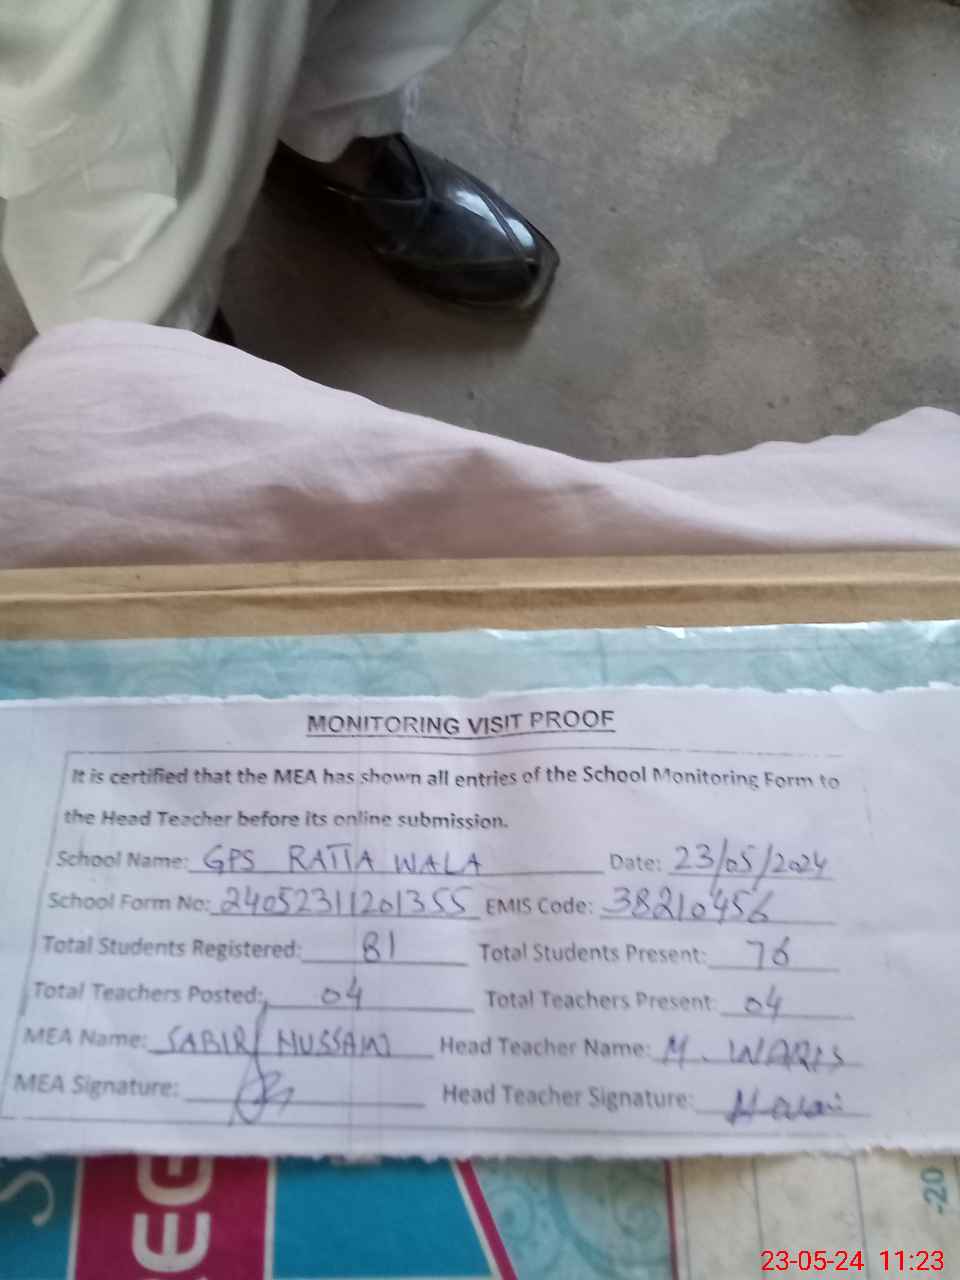 MONITORING VISIT PROOF
It is certified that the MEA has shown all entries of the School Monitoring Form to
the Head Teacher before its online submission.
School Name: GPS RATTA WALA Date: 23/05/2024
School Form No: 24052311201355 EMIS Code: 38210456
Total Students Registered: 81 Total Students Present: 76
Total Teachers Posted: 04 Total Teachers Present: 04
MEA Name: SABIR HUSSAIN Head Teacher Name: M. WARIS
MEA Signature: Head Teacher Signature:
REG
-20
23-05-24 11:23